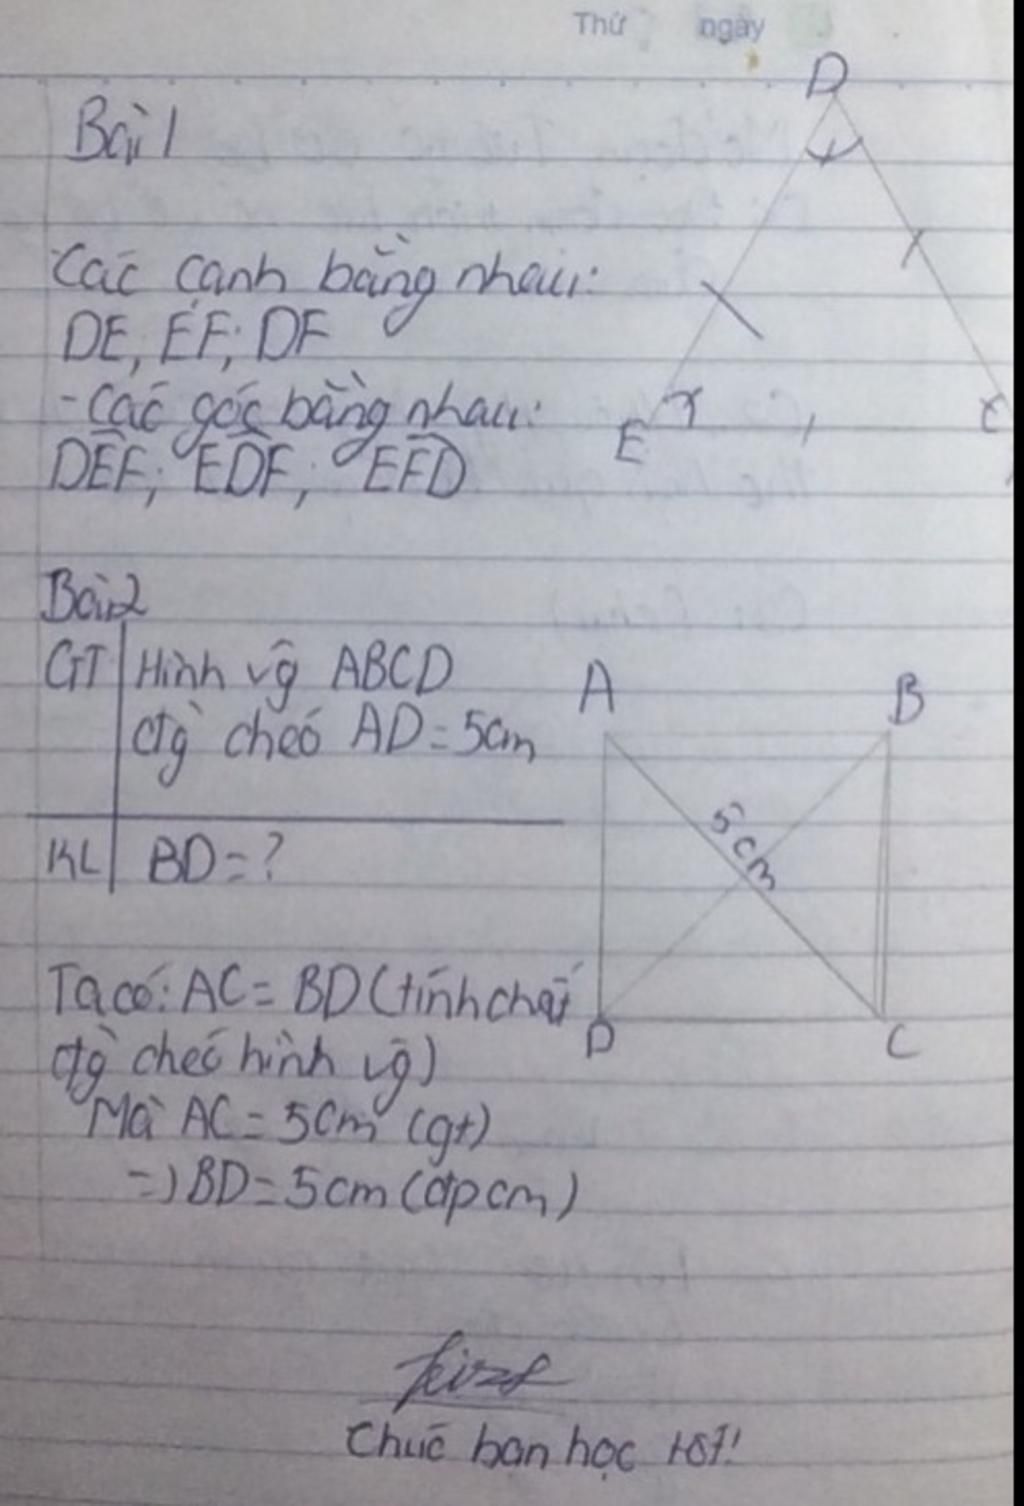 Thứ ngày
D
Bài 1
Các cạnh bằng nhau:
DE, EF; DF
- Các góc bằng nhau:
DEF; EDF; EFD
E
Bài 2
GT Hình vg ABCD
đg chéo AD = 5cm
A B
5cm
KL BD = ?
Ta có: AC = BD (tính chất
D C
đg chéo hình vg)
Mà AC = 5cm (gt)
=) BD = 5cm (đpcm)
Chúc bạn học tốt!